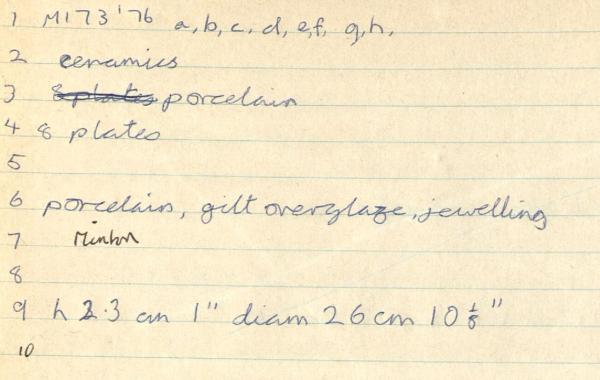 1 M173'76 a,b,c,d,e,f, g,h,
2 ceramics
3 8 plates porcelain
4 8 plates
5
6 porcelain, gilt overglaze, jewelling
7 Minton
8
9 h 2.3 cm 1" diam 26 cm 10 1/8"
10